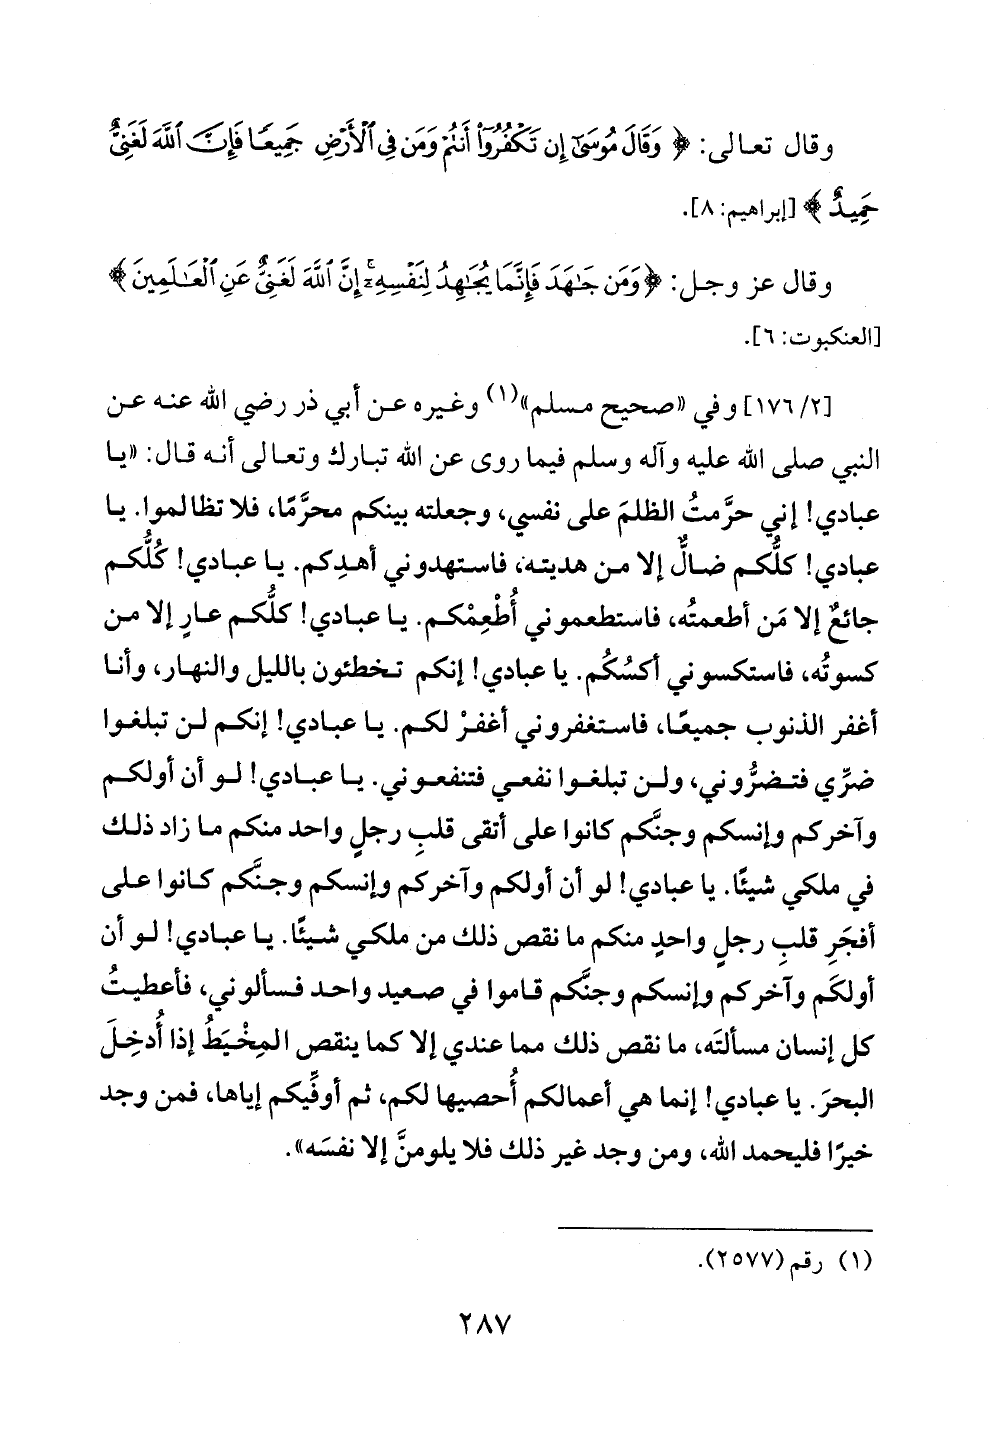 وقال تعالى: ﴿ وَقَالَ مُوسَىٰٓ إِن تَكْفُرُوٓا۟ أَنتُمْ وَمَن فِى ٱلْأَرْضِ جَمِيعًا فَإِنَّ ٱللَّهَ لَغَنِىٌّ
حَمِيدٌ ﴾ [إبراهيم: ٨].
وقال عز وجل: ﴿وَمَن جَٰهَدَ فَإِنَّمَا يُجَٰهِدُ لِنَفْسِهِۦٓ ۚ إِنَّ ٱللَّهَ لَغَنِىٌّ عَنِ ٱلْعَٰلَمِينَ ﴾
[العنكبوت: ٦].
[٢/ ١٧٦] و في «صحيح مسلم»(١) وغيره عن أبي ذر رضي الله عنه عن
النبي صلى الله عليه وآله وسلم فيما روى عن الله تبارك وتعالى أنه قال: «يا
عبادي! إني حرَّمتُ الظلمَ على نفسي، وجعلته بينكم محرَّمًا، فلا تظالموا. يا
عبادي! كلُّكم ضالٌّ إلا من هديته، فاستهدوني أهدِكم. يا عبادي! كُلُّكم
جائعٌ إلا مَن أطعمتُه، فاستطعموني أُطْعِمْكم. يا عبادي! كلُّكم عارٍ إلا من
كسوتُه، فاستكسوني أكسُكُم. يا عبادي! إنكم تخطئون بالليل والنهار، وأنا
أغفر الذنوب جميعًا، فاستغفروني أغفرْ لكم. يا عبادي! إنكم لن تبلغوا
ضرِّي فتضرُّوني، ولن تبلغوا نفعي فتنفعوني. يا عبادي! لو أن أولكم
وآخركم وإنسكم وجنَّكم كانوا على أتقى قلبِ رجلٍ واحد منكم ما زاد ذلك
في ملكي شيئًا. يا عبادي! لو أن أولكم وآخركم وإنسكم وجنَّكم كانوا على
أفجَرِ قلبِ رجلٍ واحدٍ منكم ما نقص ذلك من ملكي شيئًا. يا عبادي! لو أن
أولكَم وآخركم وإنسكم وجنَّكم قاموا في صعيد واحد فسألوني، فأعطيتُ
كل إنسان مسألتَه، ما نقص ذلك مما عندي إلا كما ينقص المِخْيَطُ إذا أُدخِلَ
البحرَ. يا عبادي! إنما هي أعمالكم أُحصيها لكم، ثم أوفِّيكم إياها، فمن وجد
خيرًا فليحمد الله، ومن وجد غير ذلك فلا يلومنَّ إلا نفسَه».
(١) رقم (٢٥٧٧).
٢٨٧